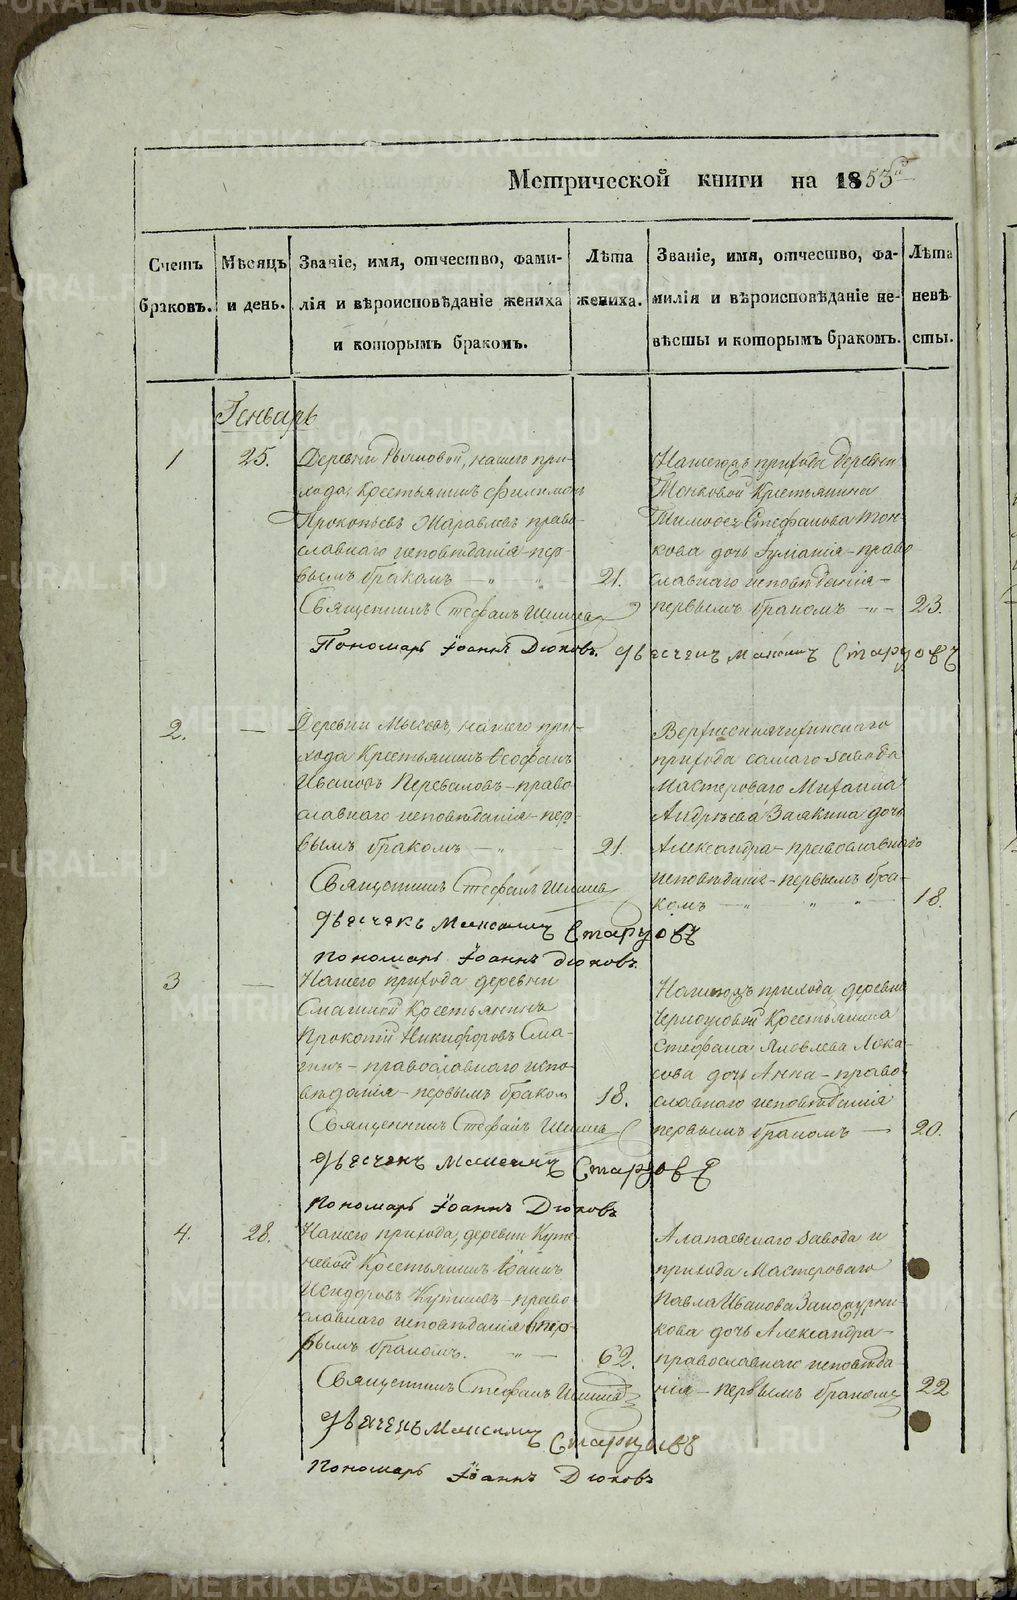 Метрической книги на 1853й
Счетъ браковъ.
Мѣсяцъ и день.
Званіе, имя, отчество, фами-
лія и вѣроисповѣданіе жениха
и которымъ бракомъ.
Лѣта жениха.
Званіе, имя, отчество, фа-
милія и вѣроисповѣданіе не-
вѣсты и которымъ бракомъ.
Лѣта невѣ
сты.
Генварь
1
25.
Деревни нашего при-
хода, Крестьянинъ Филимонъ
Прокопьевъ Жаравлевъ право-
славнаго исповѣданія – пер-
вымъ бракомъ – „ „
21.
Священникъ Стефанъ
Пономарь Іоаннъ Дюковъ.
прихода деревни
Тонковой Крестьянина
Стефанова Тон-
кова дочь Іуліанія – право
славнаго исповѣданія –
первымъ бракомъ – „ –
23.
Дьячекъ Максимъ Старцовъ
2.
—
Деревни нашего при-
хода Крестьянинъ Ѳеофанъ
Ивановъ Переваловъ – право
славнаго исповѣданія – пер-
вымъ бракомъ – „ –
21.
Священникъ Стефанъ
Дьячекъ Максимъ Старцовъ
Пономарь Іоаннъ Дюковъ.
прихода самаго завода
Мастероваго Михаила
Андрѣева Заякина дочь
Александра – православнаго
исповѣданія – первымъ бра-
комъ – „ „ „ –
18.
3
—
Нашего прихода деревни
Смагиной Крестьянинъ
Прокопій Никифоровъ Сма-
гинъ – православнаго испо-
вѣданія – первымъ браком
18.
Священникъ Стефанъ
Дьячекъ Максимъ Старцовъ
Пономарь Іоаннъ Дюковъ
прихода деревни
Крестьянина
Стефана Яковлева
дочь Анна – право
славнаго исповѣданія
первымъ бракомъ –
20.
4.
28.
Нашего прихода, деревни Куте-
невой Крестьянинъ Іоаннъ
Исидоровъ – право
славнаго исповѣданія пер-
вымъ бракомъ. – „ –
62.
Священникъ Стефанъ
Дьячекъ Максимъ Старцовъ
Пономарь Іоаннъ Дюковъ
Алапаевскаго завода и
прихода Мастероваго
Павла Иванова
кова дочь Александра –
православнаго исповѣда
нія – первымъ бракомъ
22
METRIKI.GASO-URAL.RU